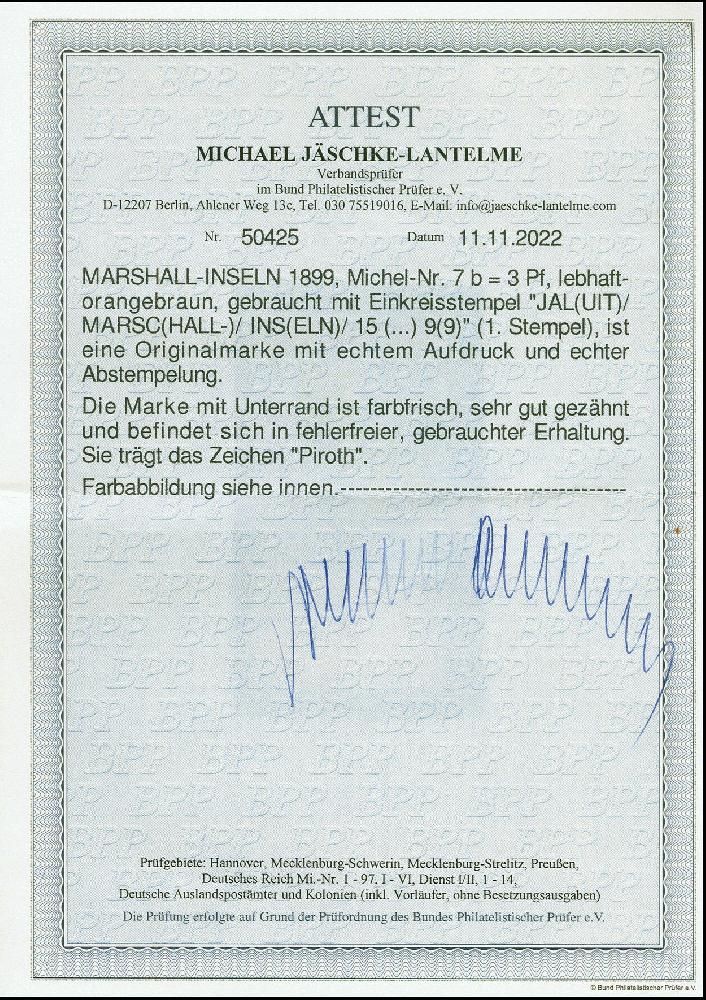 ATTEST
MICHAEL JÄSCHKE-LANTELME
Verbandsprüfer
im Bund Philatelistischer Prüfer e. V.
D-12207 Berlin, Ahlener Weg 13c, Tel. 030 75519016, E-Mail: info@jaeschke-lantelme.com
Nr. 50425 Datum 11.11.2022
MARSHALL-INSELN 1899, Michel-Nr. 7 b = 3 Pf, lebhaft-
orangebraun, gebraucht mit Einkreisstempel "JAL(UIT)/
MARSC(HALL-)/ INS(ELN)/ 15 (...) 9(9)" (1. Stempel), ist
eine Originalmarke mit echtem Aufdruck und echter
Abstempelung.
Die Marke mit Unterrand ist farbfrisch, sehr gut gezähnt
und befindet sich in fehlerfreier, gebrauchter Erhaltung.
Sie trägt das Zeichen "Piroth".
Farbabbildung siehe innen.-----------------------------------------------
Prüfgebiete: Hannover, Mecklenburg-Schwerin, Mecklenburg-Strelitz, Preußen,
Deutsches Reich Mi.-Nr. 1 - 97, I - VI, Dienst I/II, 1 - 14,
Deutsche Auslandspostämter und Kolonien (inkl. Vorläufer, ohne Besetzungsausgaben)
Die Prüfung erfolgte auf Grund der Prüfordnung des Bundes Philatelistischer Prüfer e.V.
© Bund Philatelistischer Prüfer e.V.